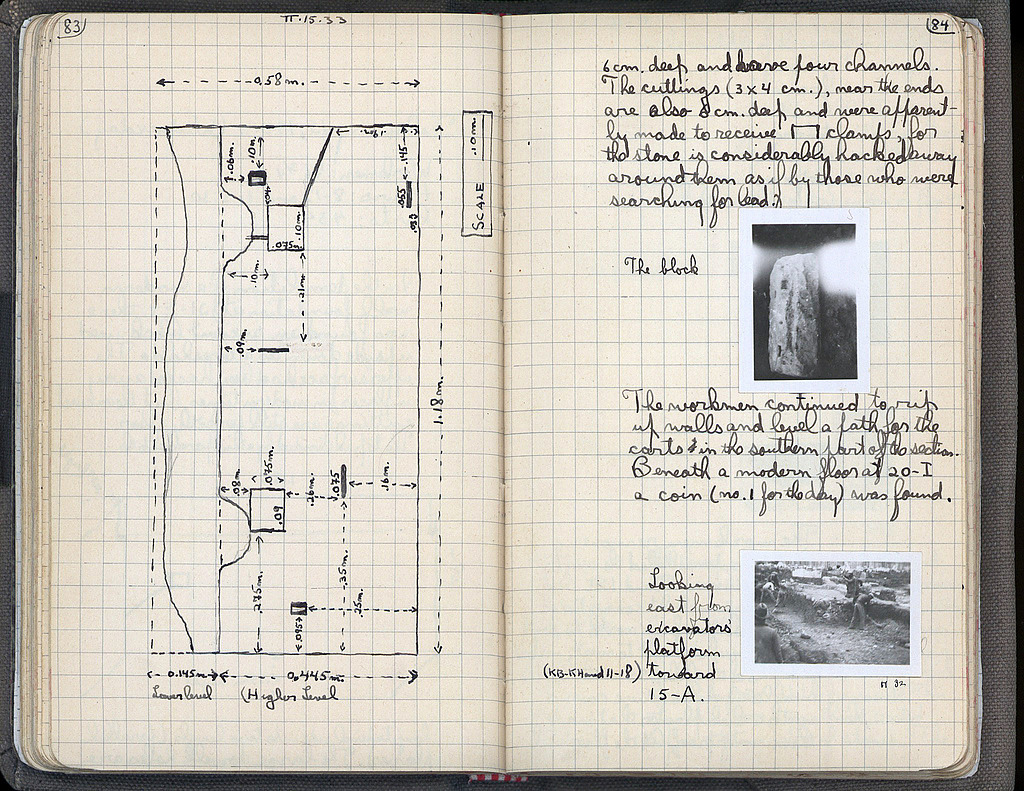 83
π.15.33
0.58m.
.06m.
.10m.
.19m.
.145m.
.055
.10m.
.075m.
.10m.
.21m.
.09m.
SCALE
.10m.
1.18m.
.08m.
.075m.
.09
.26m.
.075
.16m.
.275m.
.095
.35m.
.25m.
0.145m.
0.445m.
Lower level
(Higher Level
84
6 cm. deep and have four channels.
The cuttings (3 x 4 cm.), near the ends
are also 8 cm. deep and were apparent-
ly made to receive clamps, for
the stone is considerably hacked away
around them as if by those who were
searching for lead.?
The block
The workmen continued to rip
up walls and level a path for the
carts in the southern part of the section.
Beneath a modern floor at 20-I
a coin (no. 1 for the day) was found.
Looking
east from
excavators'
platform
(KB-KH and 11-18) toward
15-A.